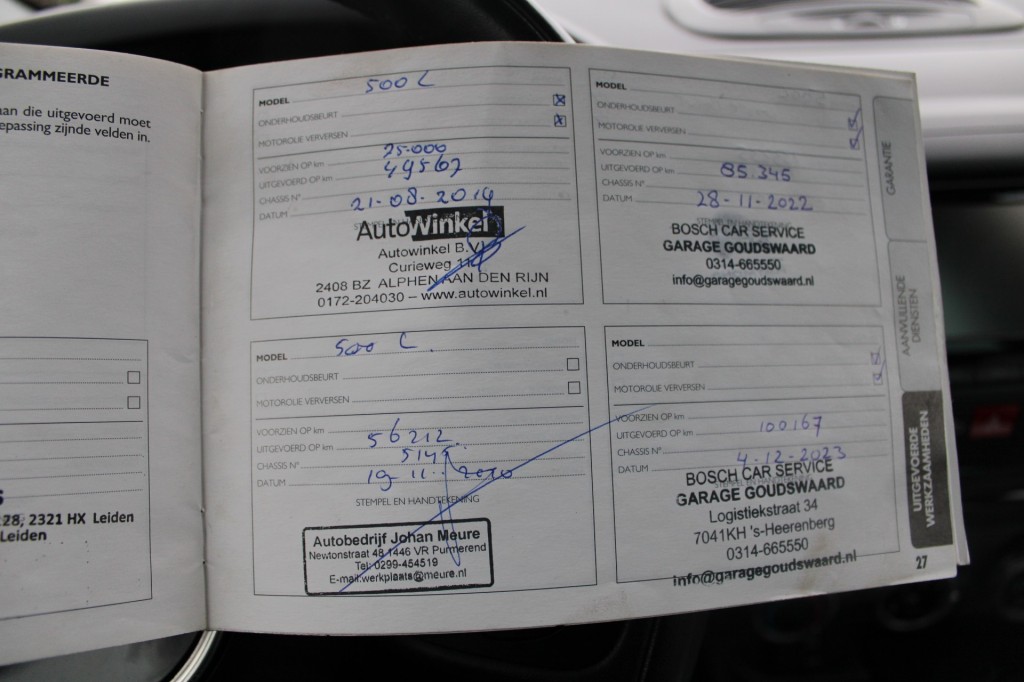 GRAMMEERDE
aan die uitgevoerd moet
epassing zijnde velden in.
28, 2321 HX Leiden
Leiden
MODEL 500 L
ONDERHOUDSBEURT
MOTOROLIE VERVERSEN
VOORZIEN OP km 75.000
UITGEVOERD OP km 49567
CHASSIS N°
DATUM 21-08-2019
AutoWinkel
Autowinkel B.V.
Curieweg
2408 BZ ALPHEN AAN DEN RIJN
0172-204030 – www.autowinkel.nl
MODEL 500 L
ONDERHOUDSBEURT
MOTOROLIE VERVERSEN
VOORZIEN OP km
UITGEVOERD OP km 56212
CHASSIS N°
DATUM 19-11-2020
STEMPEL EN HANDTEKENING
Autobedrijf Johan Meure
Newtonstraat 48 1446 VR Purmerend
Tel: 0299-454519
E-mail:werkplaats@meure.nl
MODEL
ONDERHOUDSBEURT
MOTOROLIE VERVERSEN
VOORZIEN OP km
UITGEVOERD OP km 85.345
CHASSIS N°
DATUM 28-11-2022
BOSCH CAR SERVICE
GARAGE GOUDSWAARD
0314-665550
info@garagegoudswaard.nl
MODEL
ONDERHOUDSBEURT
MOTOROLIE VERVERSEN
VOORZIEN OP km
UITGEVOERD OP km 100.167
CHASSIS N°
DATUM 4-12-2023
BOSCH CAR SERVICE
GARAGE GOUDSWAARD
Logistiekstraat 34
7041KH 's-Heerenberg
0314-665550
info@garagegoudswaard.nl
GARANTIE
AANVULLENDE
DIENSTEN
UITGEVOERDE
WERKZAAMHEDEN
27